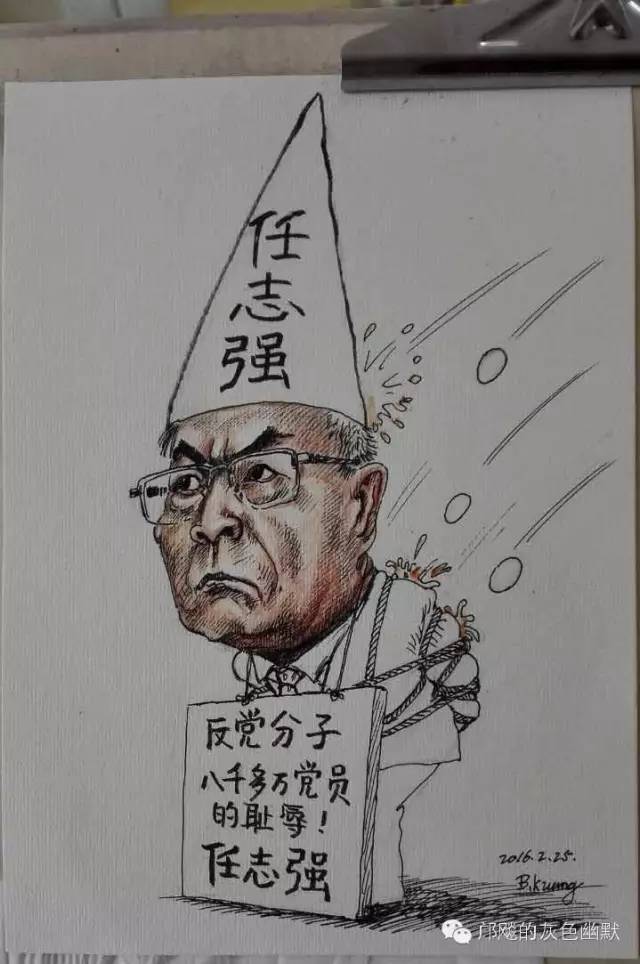 任志强
反党分子
八千多万党员
的耻辱!
任志强
2016.2.25.
邝飚的灰色幽默